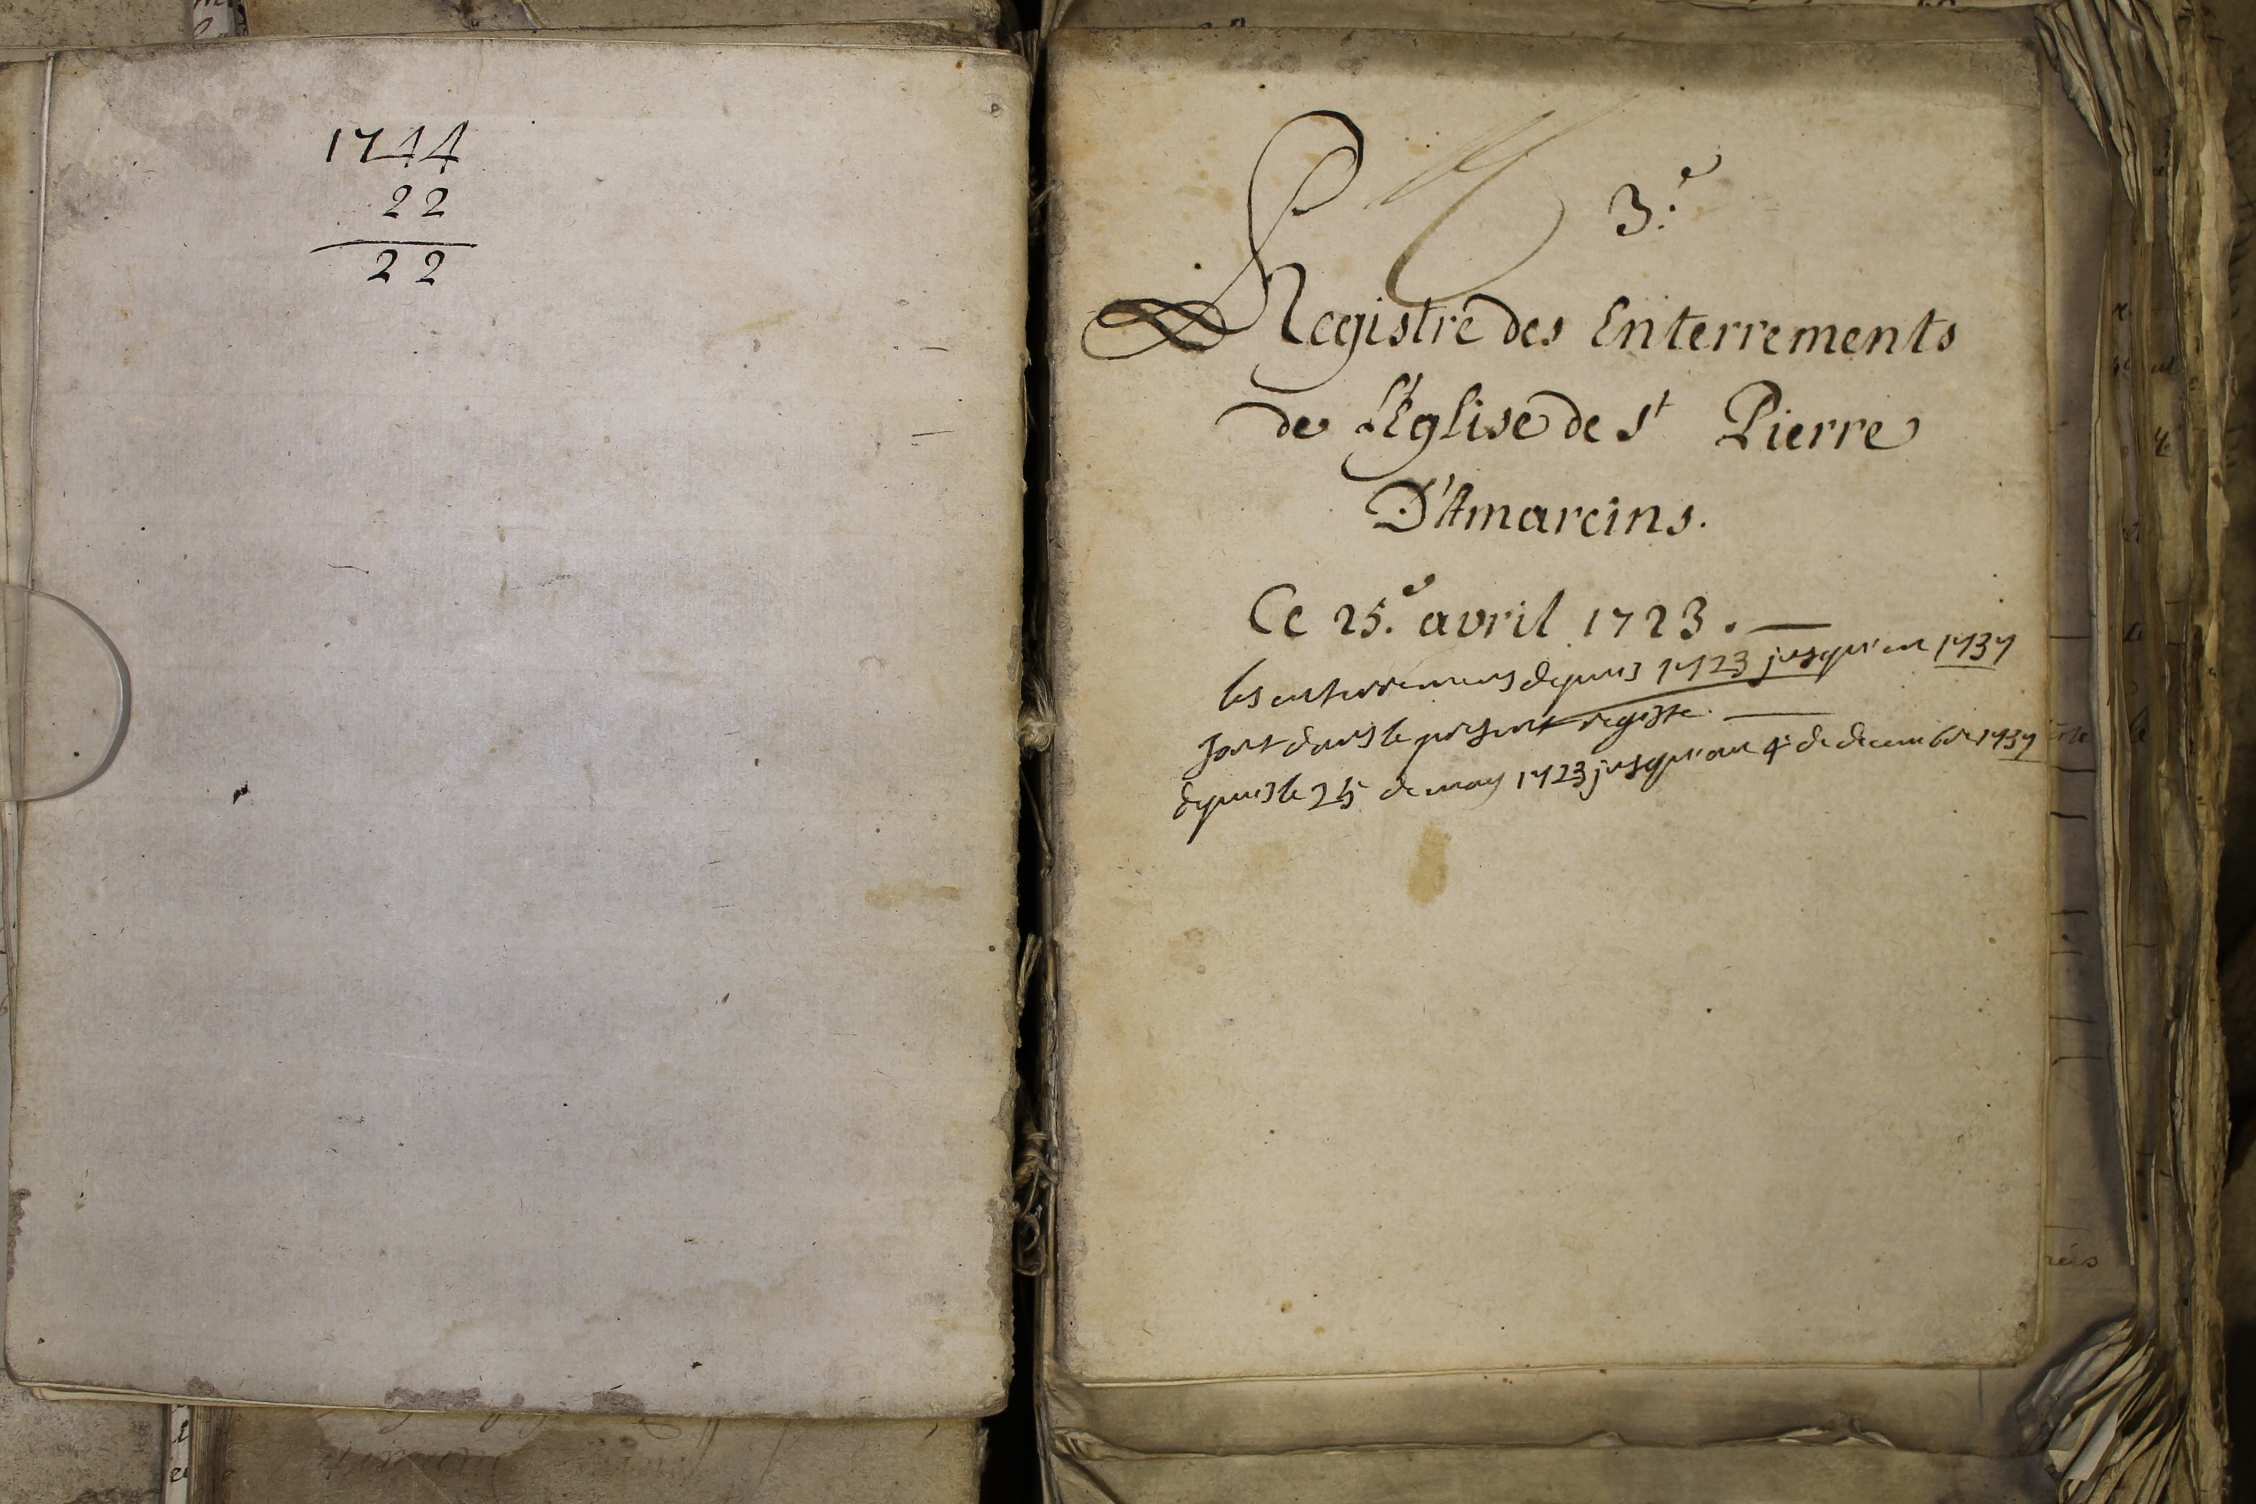 1744
22
22
3.e
Registre des Enterrements
de L'Eglise de St Pierre
D'Amarcins.
Ce 25.e avril 1723.
les enterremens depuis 1723 jusqu'en 1737
sont dans le present registe.
depuis le 25 de may 1723 jusqu'au 4e de decembre 1737